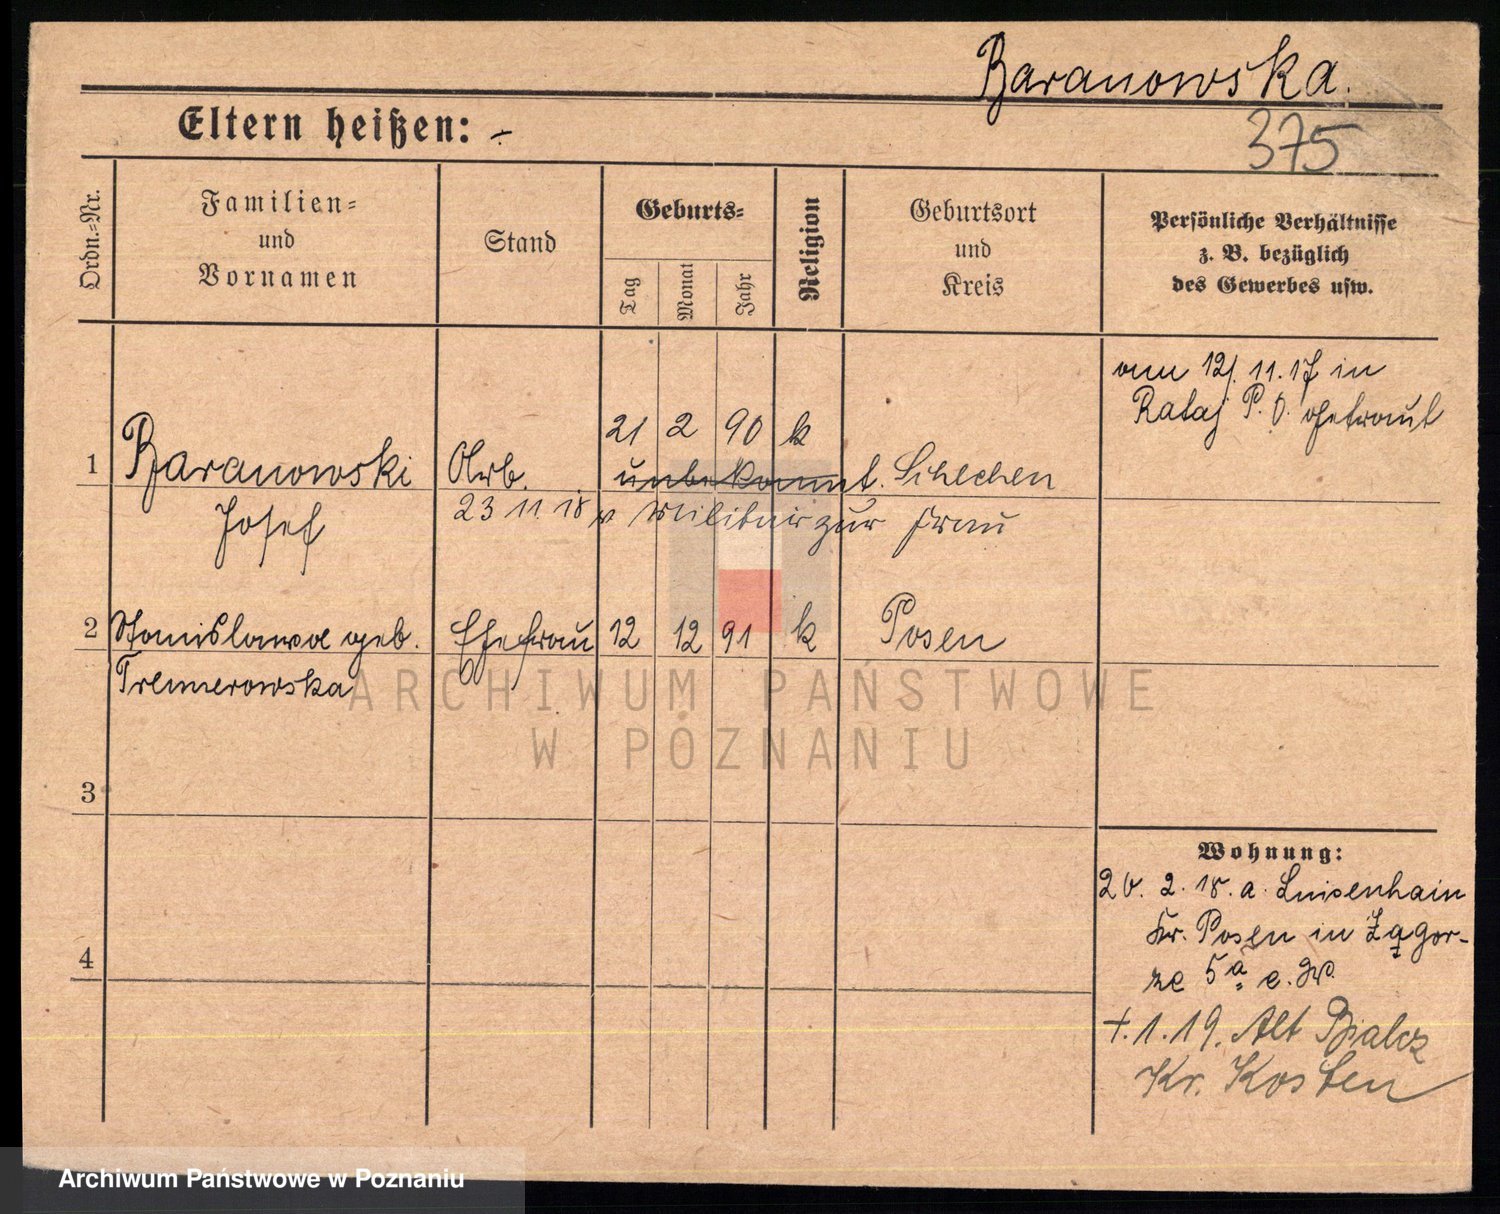 Baranowska.
375
Eltern heißen: -
Ordn.-Nr.
Familien-
und
Vornamen
Stand
Geburts-
Tag
Monat
Jahr
Religion
Geburtsort
und
Kreis
Persönliche Verhältnisse
z. B. bezüglich
des Gewerbes usw.
am 12/. 11.17 in
Rataj P. O. geheiraut
21 2 90 k
1 Baranowski Arb. unbekannt. Schlehen
Josef 23 11. 18 v Militair zur Frau
2 Stanislawa geb. Ehefrau 12 12 91 k Posen
Tremerowska
3
4
Wohnung:
20. 2. 18. a. Luisenhain
Kr. Posen in Zagor-
ze 5a
+.1.19. Alt Bialcz
Kr. Kosten
ARCHIWUM PAŃSTWOWE
W POZNANIU
Archiwum Państwowe w Poznaniu